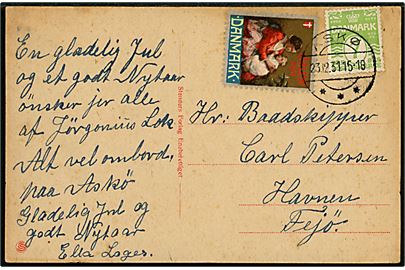 En glædelig Jul
og et godt Nytaar
ønsker jer alle
af Jörgonius Lok
Alt vel ombord,
paa Askö
Glædelig Jul og
godt Nytaar
Ella Loges.
Stenders Forlag Eneberettiget
DANMARK
DANMARK
23.12.31.15-18
Hr: Baadskipper
Carl Petersen
Havnen
Fejö.